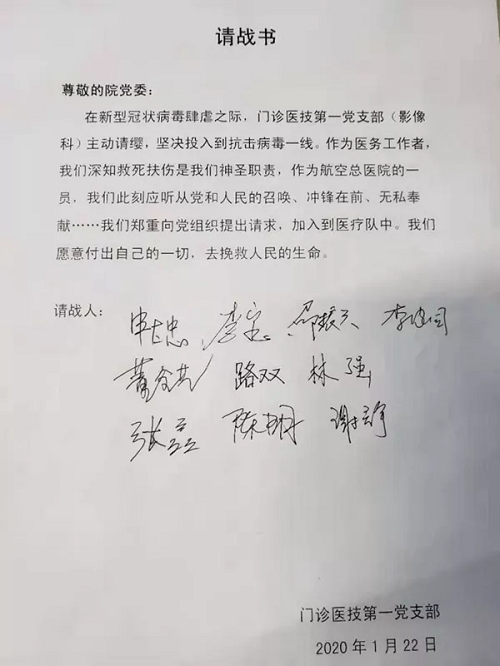 请战书
尊敬的院党委：
在新型冠状病毒肆虐之际，门诊医技第一党支部（影像
科）主动请缨，坚决投入到抗击病毒一线。作为医务工作者，
我们深知救死扶伤是我们神圣职责，作为航空总医院的一
员，我们此刻应听从党和人民的召唤、冲锋在前、无私奉
献……我们郑重向党组织提出请求，加入到医疗队中。我们
愿意付出自己的一切，去挽救人民的生命。
请战人：
路双 林强
陈明 谢静
门诊医技第一党支部
2020 年 1 月 22 日